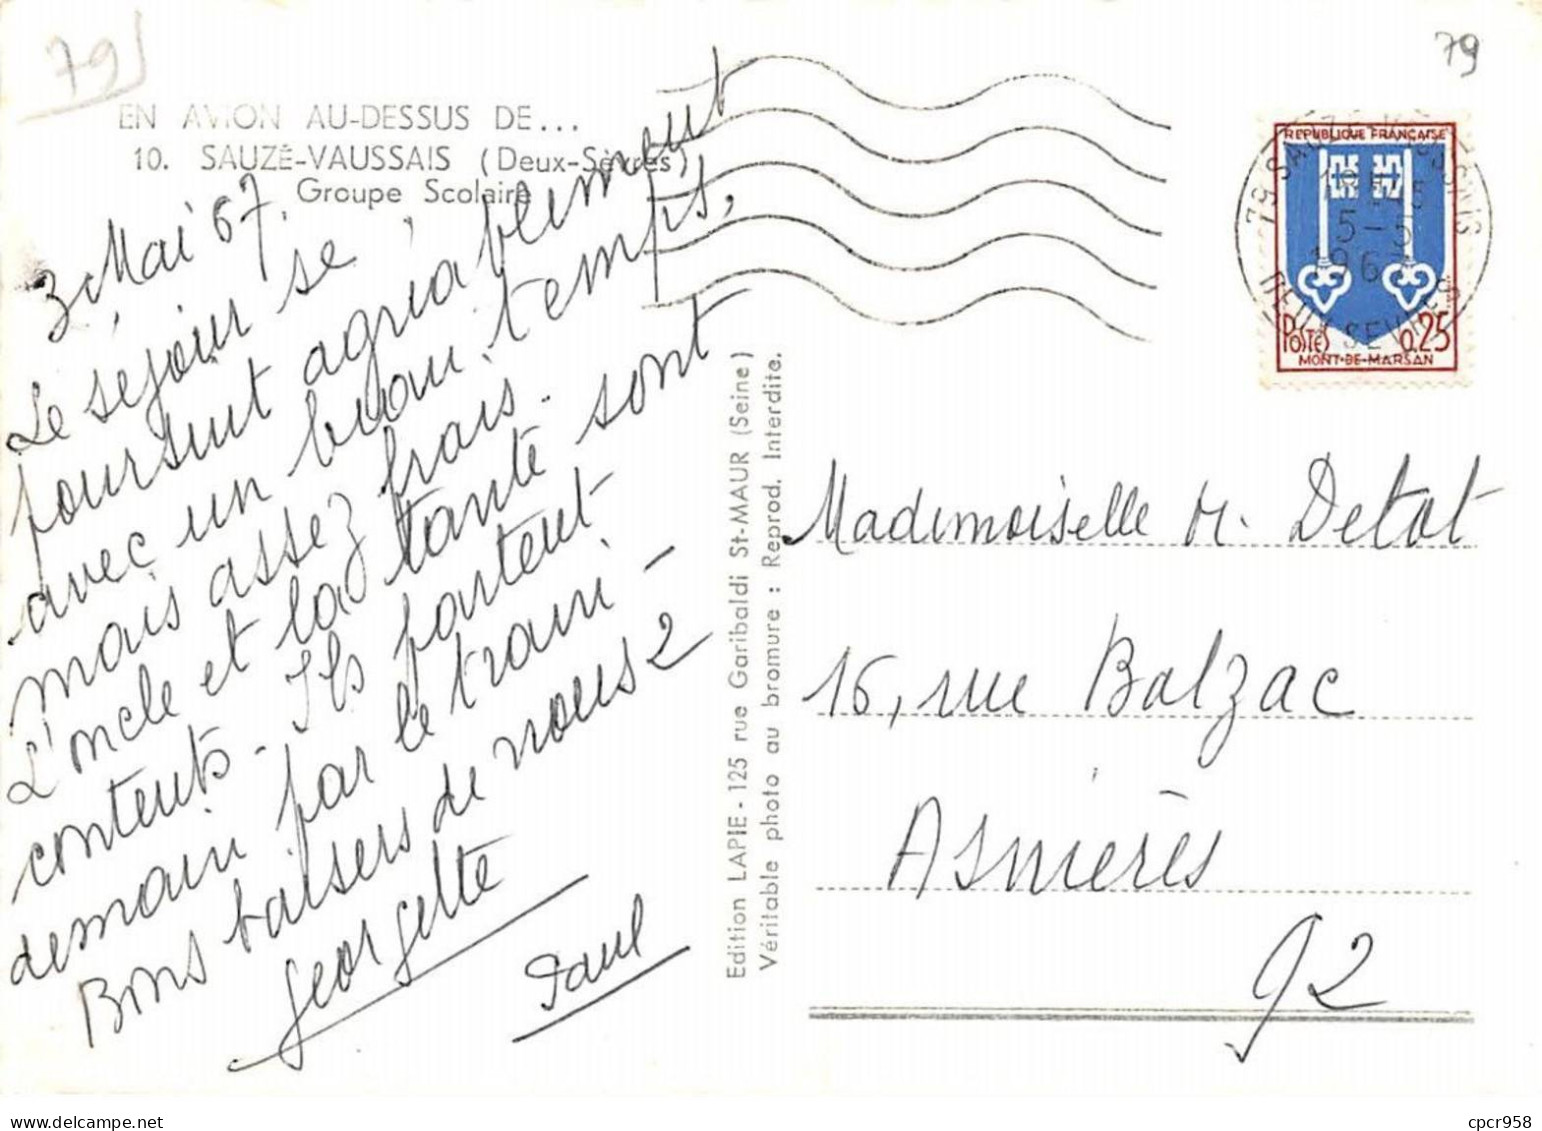 79
79
EN AVION AU-DESSUS DE...
10. SAUZÉ-VAUSSAIS (Deux-Sèvres)
Groupe Scolaire
3 Mai 67.
Le séjour se
poursuit agréablement
avec un beau temps,
mais assez frais.
L'oncle et la tante sont
contents - Ils partent
demain par le train -
Bons baisers de nous 2
Georgette
Paul
Edition LAPIE - 125 rue Garibaldi St-MAUR (Seine)
Véritable photo au bromure : Reprod. Interdite.
REPUBLIQUE FRANÇAISE
POSTES 0,25
MONT-DE-MARSAN
79 SAUZE-VAUSSAIS
5-5
1967
DEUX SEVRES
Mademoiselle M. Detot
16, rue Balzac
Asnières
92
cpcr958